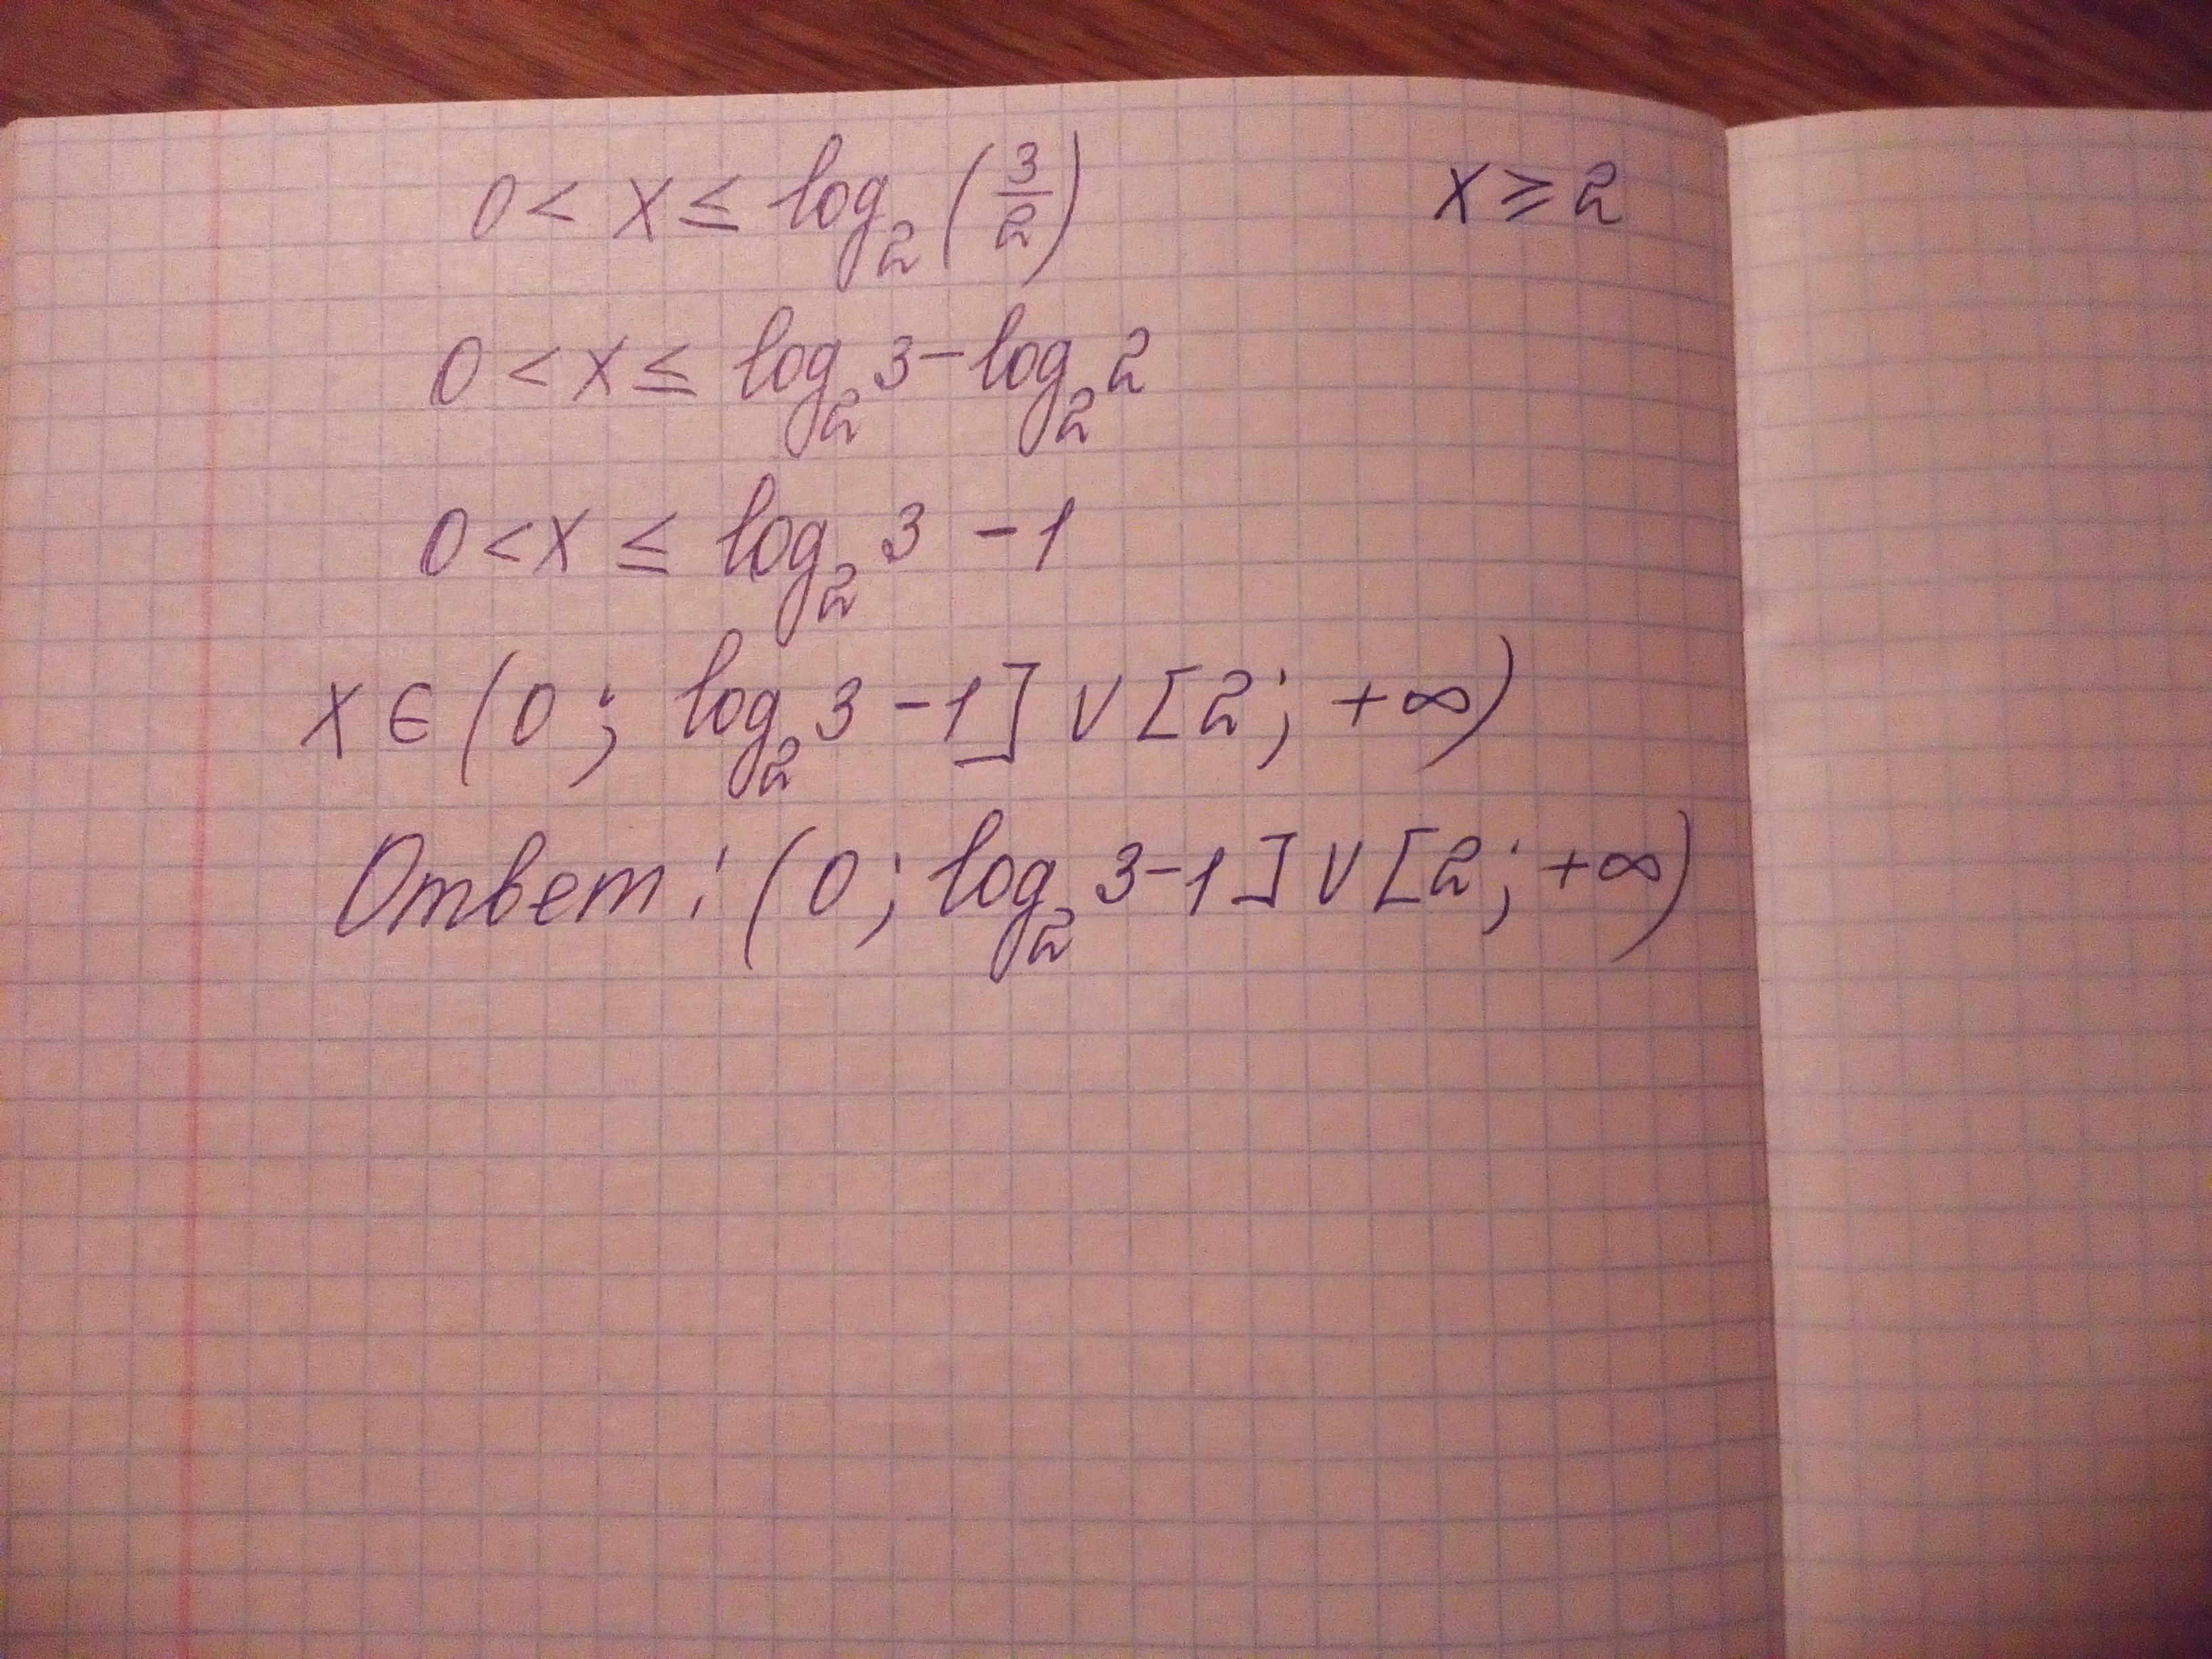 0 < x ≤ log₂(3/2) x ≥ 2
0 < x ≤ log₂3 - log₂2
0 < x ≤ log₂3 - 1
x ∈ (0; log₂3 - 1] ∪ [2; +∞)
Ответ: (0; log₂3 - 1] ∪ [2; +∞)